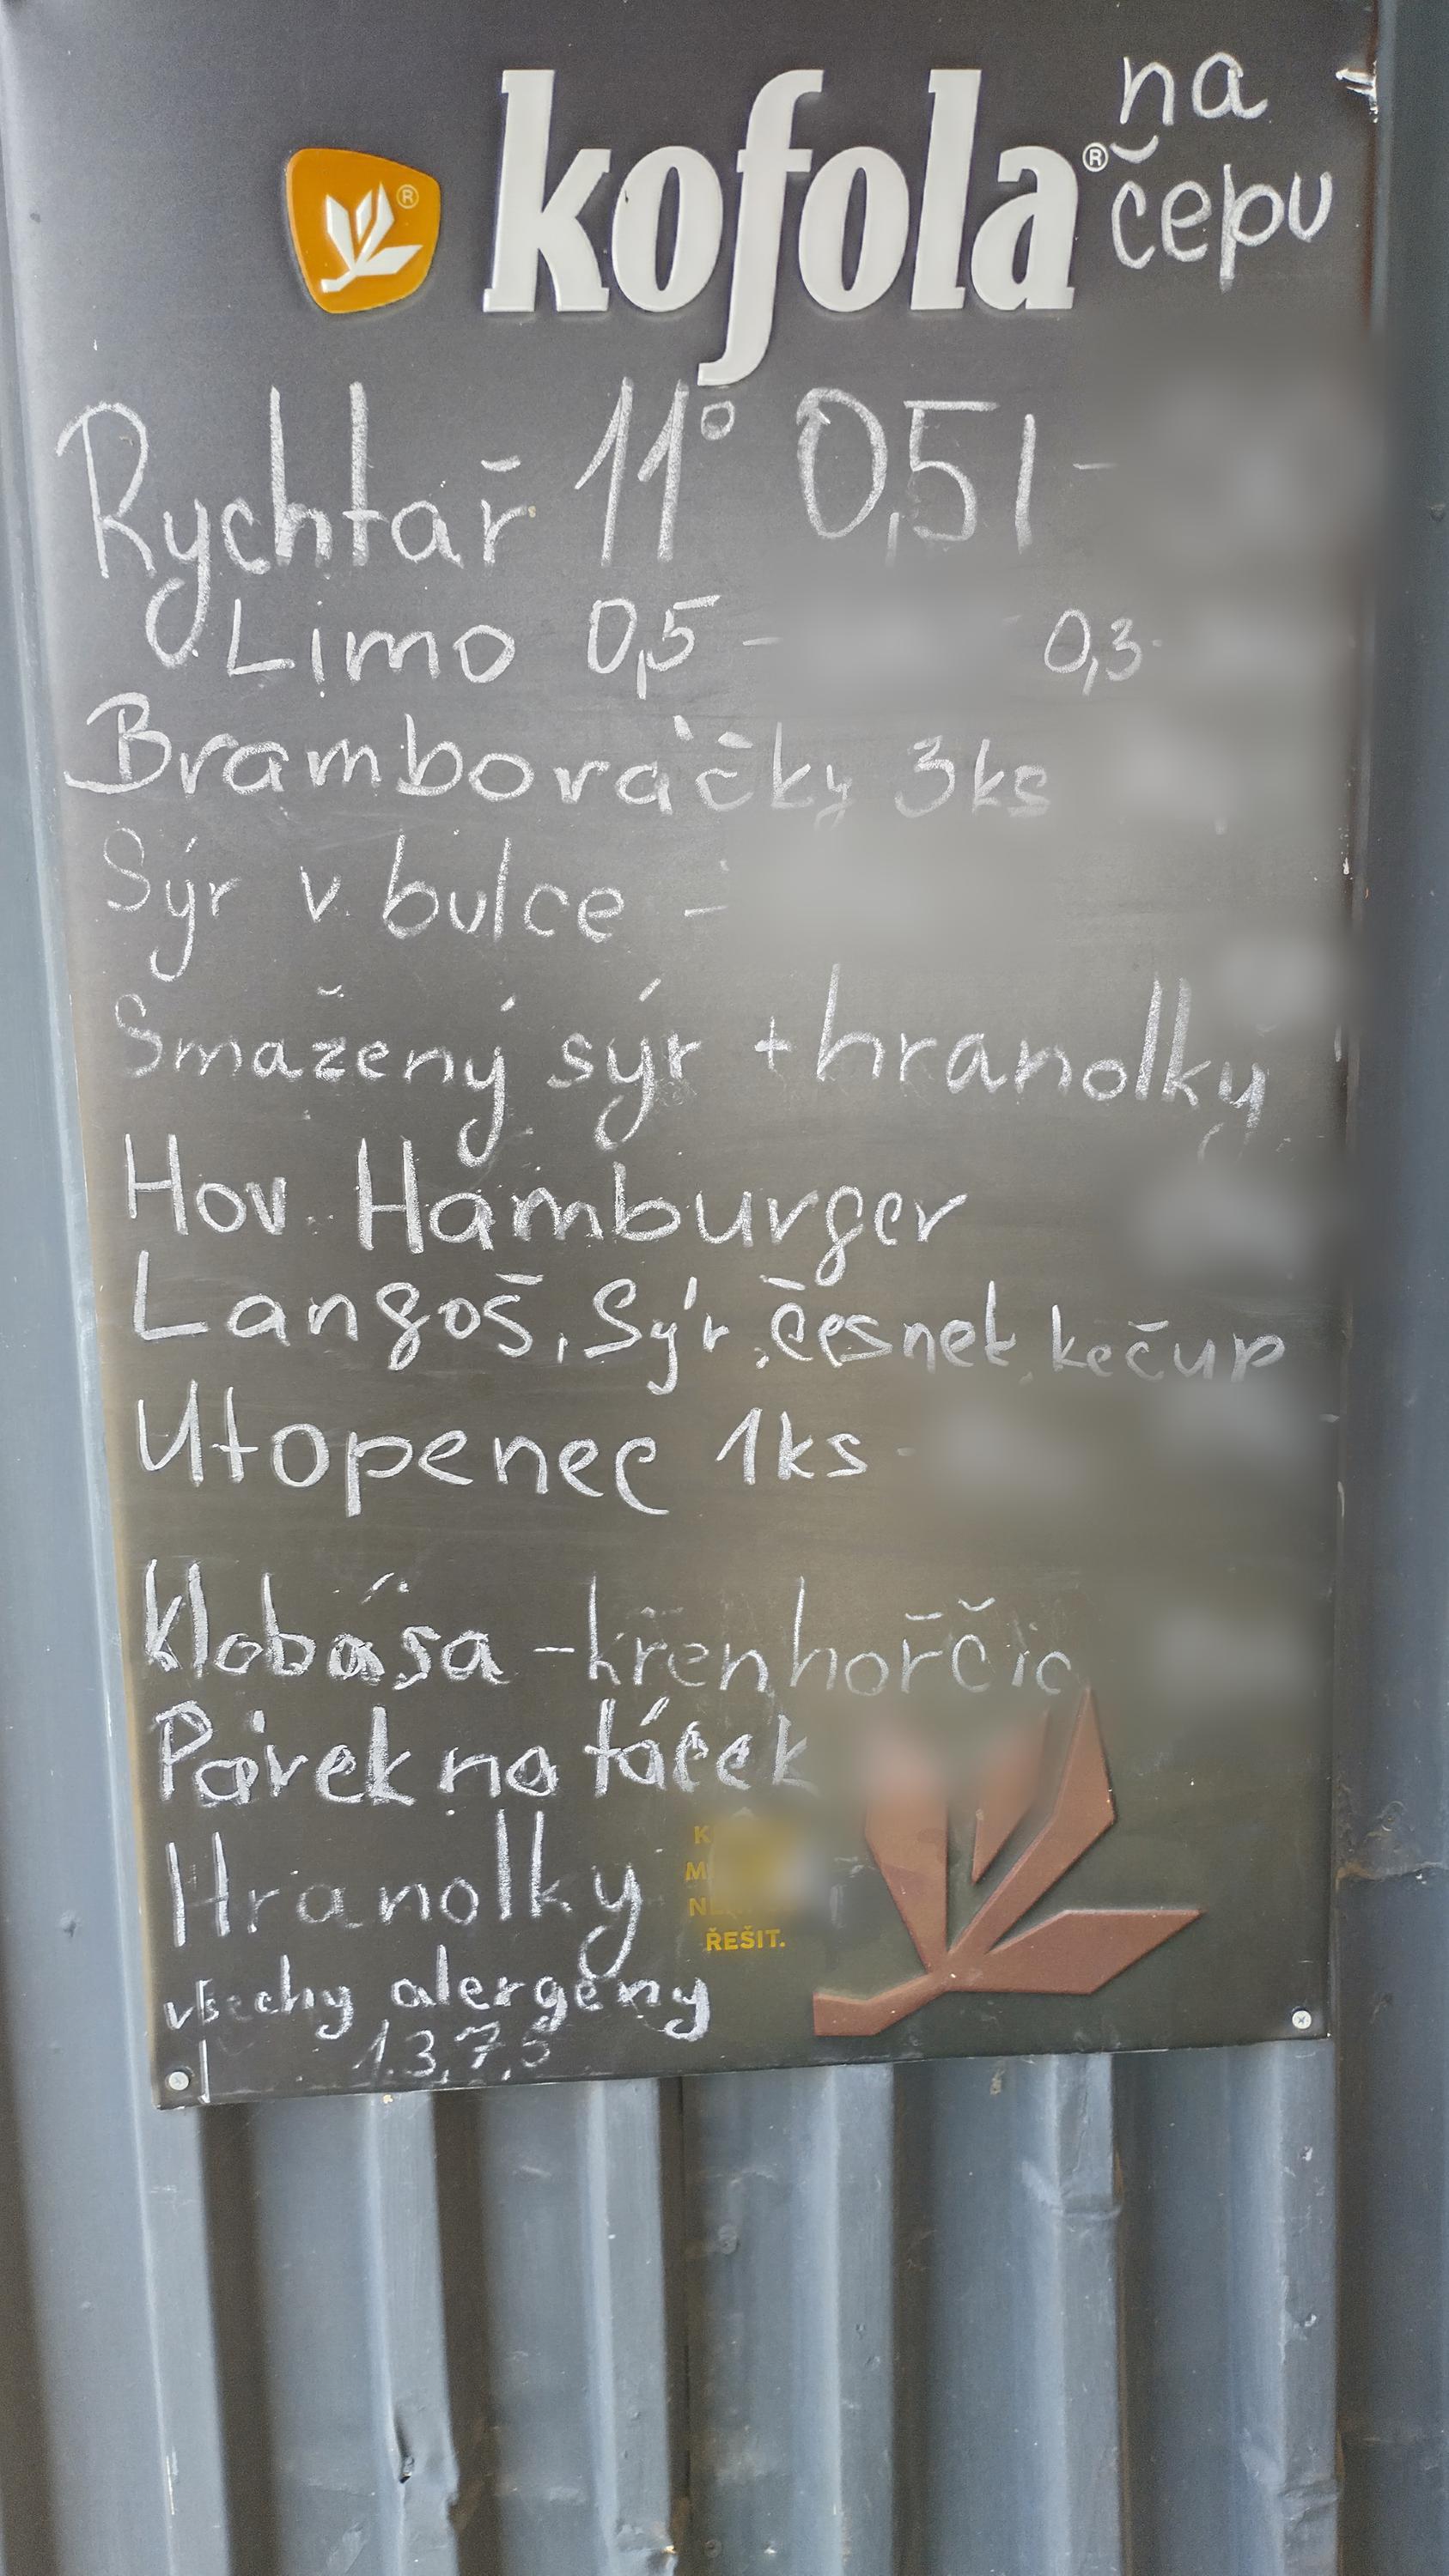 kofola® na čepu
Rychtař 11° 0,5l -
Limo 0,5 - 0,3-
Bramboráčky 3ks
Sýr v bulce -
Smažený sýr + hranolky
Hov Hamburger
Langoš, Sýr, česnek, kečup
Utopenec 1ks -
Klobása - křen hořčic
Párek na tácek
Hranolky
ŘEŠIT.
všechy alergeny
1.3.7,5